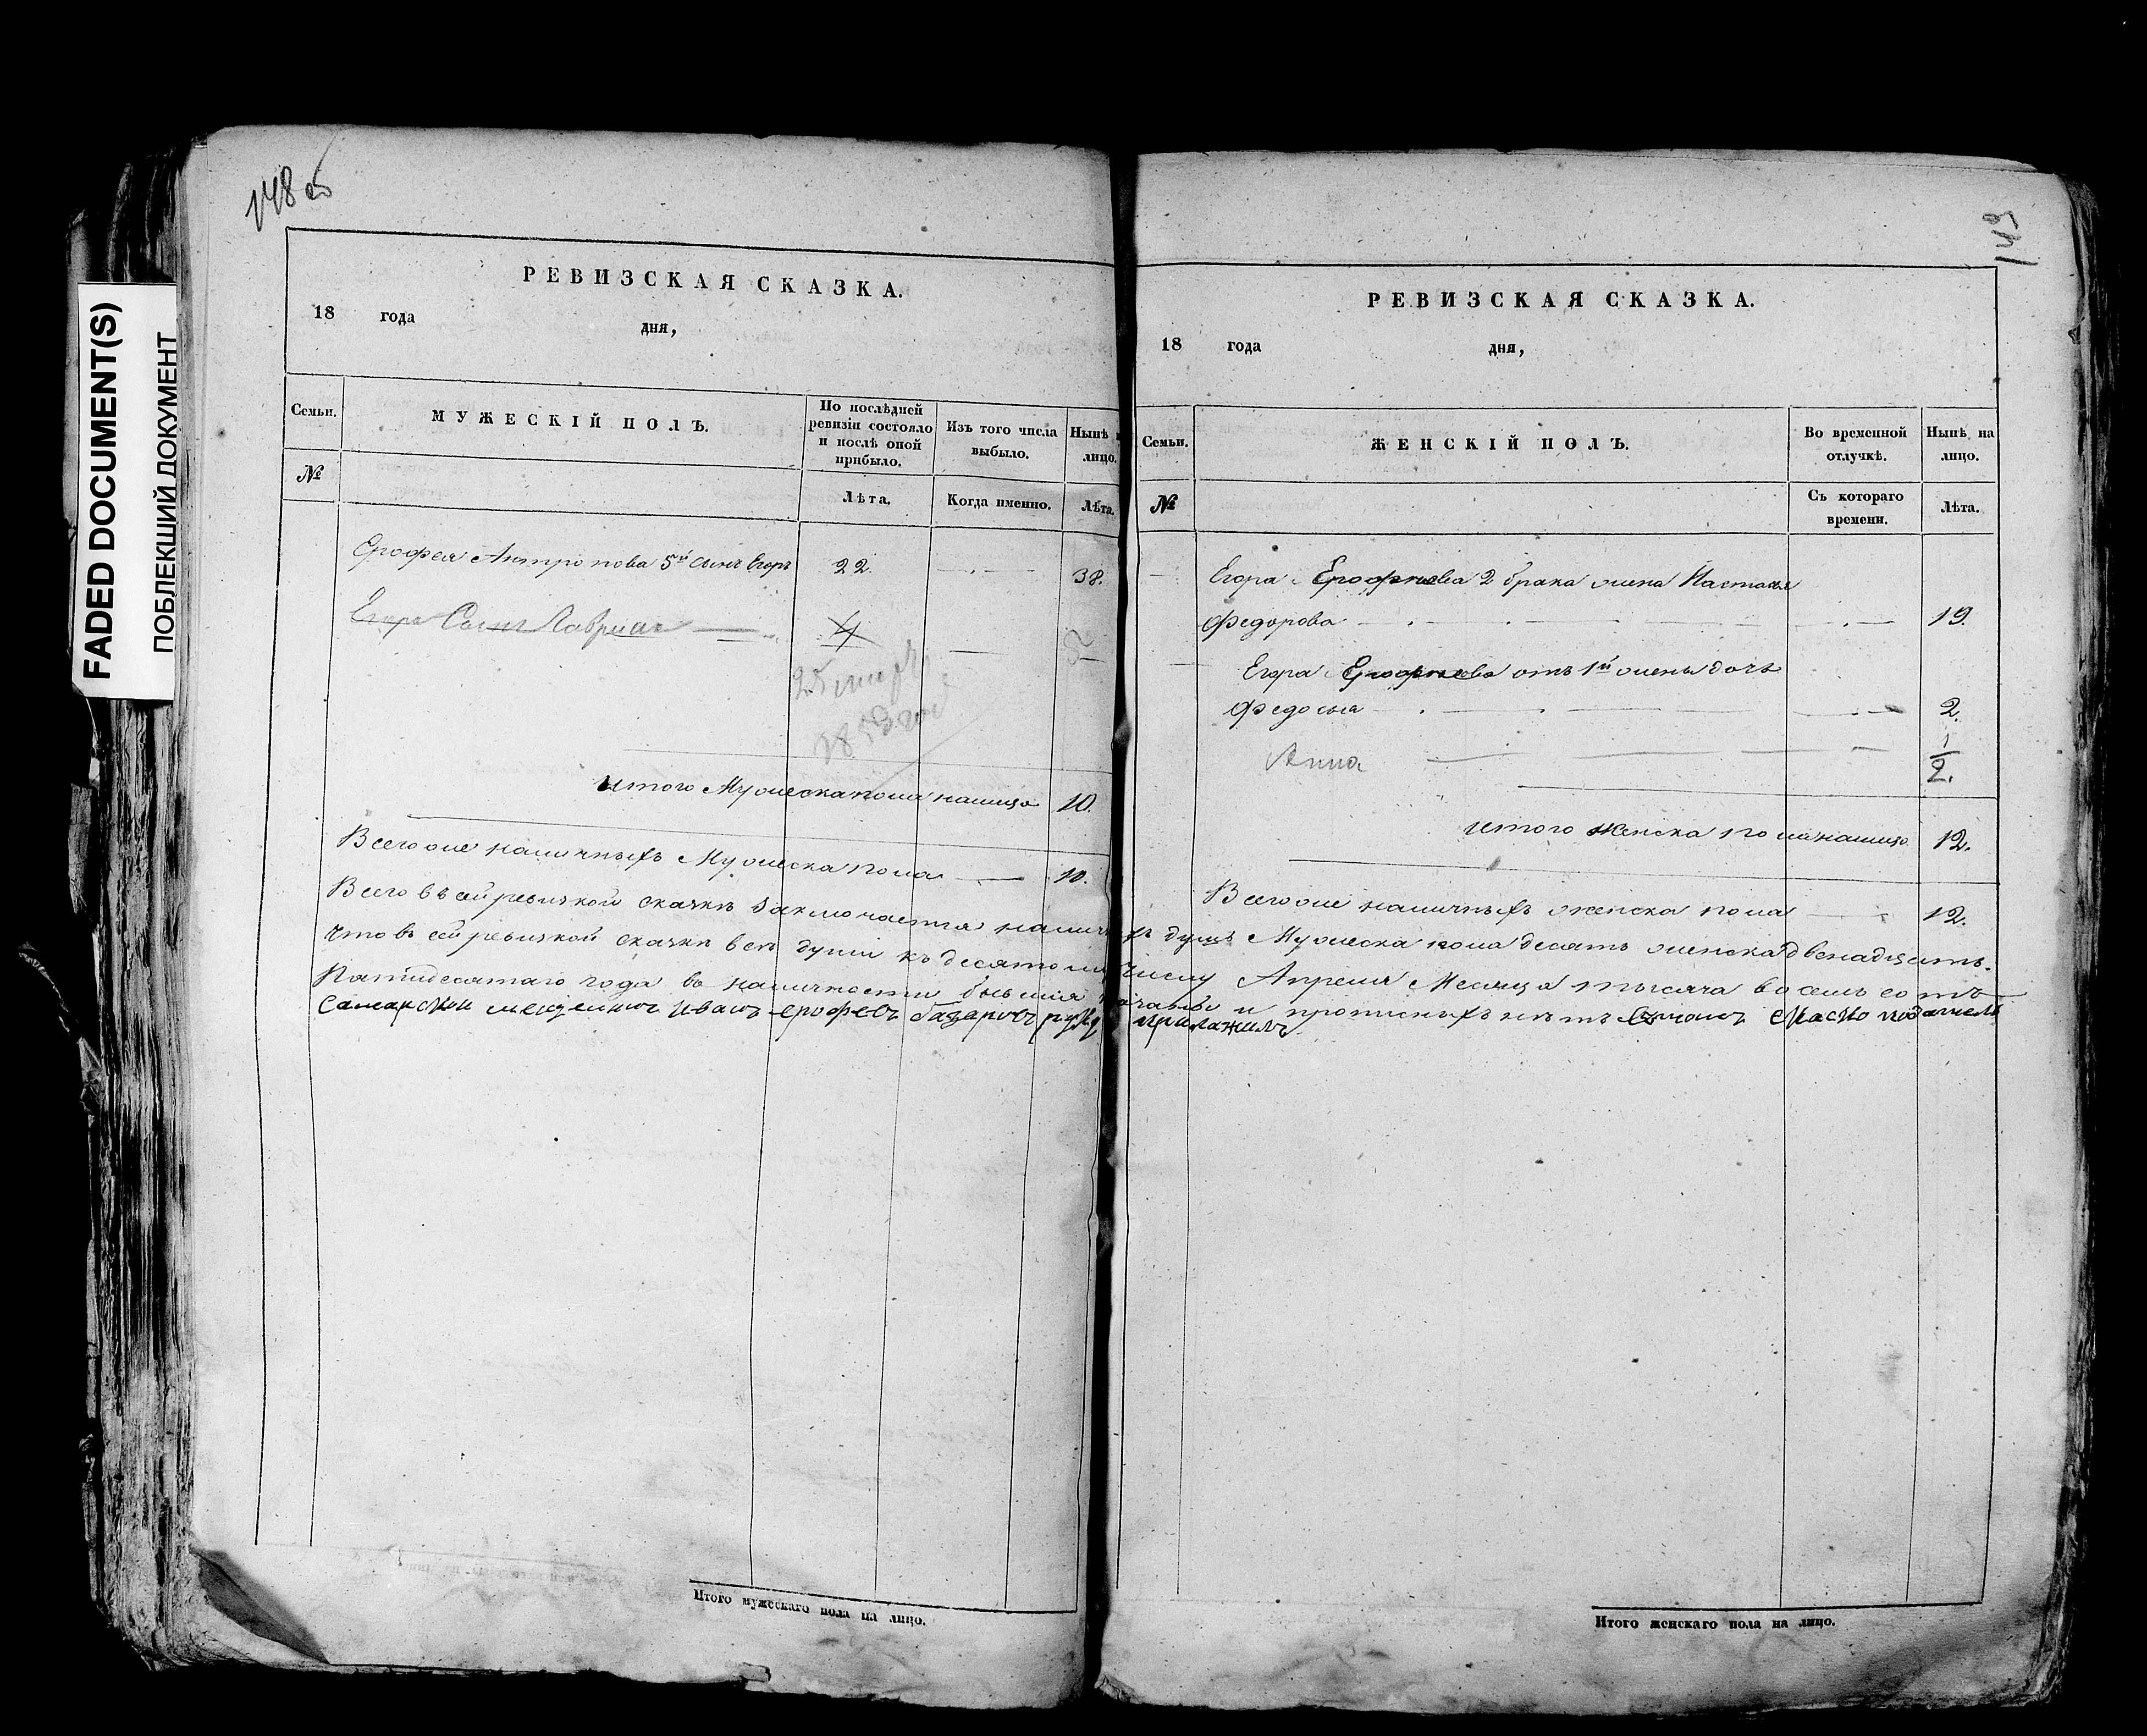 FADED DOCUMENT(S)
ПОБЛЕКШИЙ ДОКУМЕНТ
148 об
РЕВИЗСКАЯ СКАЗКА.
18 года дня,
Семьи.
№
МУЖЕСКІЙ ПОЛЪ.
По послѣдней
ревизіи состояло
и послѣ оной
прибыло.
Лѣта.
Изъ того числа
выбыло.
Когда именно.
Нынѣ
лицо.
Лѣта.
Ерофея Антропова 5й сынъ Егоръ 22. 38.
Егора Сынъ Гавриил 4
1850 года
итого Мужеска пола налицо 10.
Всего же наличныхъ Мужеска пола 10.
Итого мужескаго пола на лицо.
149
РЕВИЗСКАЯ СКАЗКА.
18 года дня,
Семьи.
№
ЖЕНСКІЙ ПОЛЪ.
Во временной
отлучкѣ.
Съ котораго
времени.
Нынѣ на
лицо.
Лѣта.
Егора Ерофѣева 2 брака жена Настасья
Федорова 19.
Егора Ерофѣева отъ 1й жены дочь
Федосья 2.
Анна 1/2.
итого женска пола налицо 12.
Всего же наличныхъ женска пола 12.
Всего въ сей ревизкой сказкѣ заключается наличныхъ душъ Мужеска пола десять женска двенадцать.
Что въ сей ревизкой сказкѣ всѣ души къ десятому Числу Апреля Месяца тысяча восемь сотъ
Пятидесятаго года въ наличности бывшія и прописныхъ нѣтъ
самарской мещенинъ иванъ ерофевъ базаровъ руку приложилъ
Итого женскаго пола на лицо.